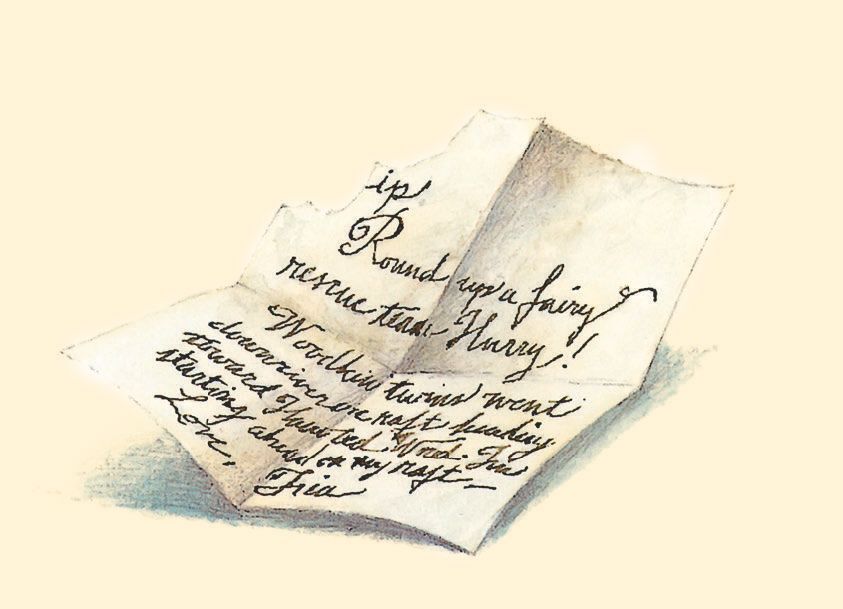 ip
Round up a fairy
rescue team Hurry!
Woodkin twins went
downriver on raft heading
toward Haunted Wood. I'm
starting ahead on my raft—
Love,
Tria